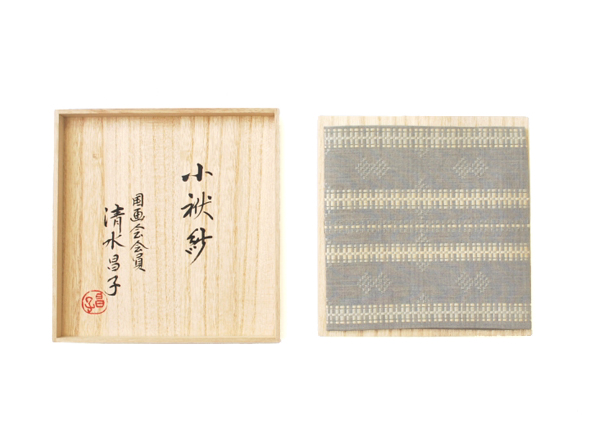 小袱紗
国画会会員
清水昌子
昌子